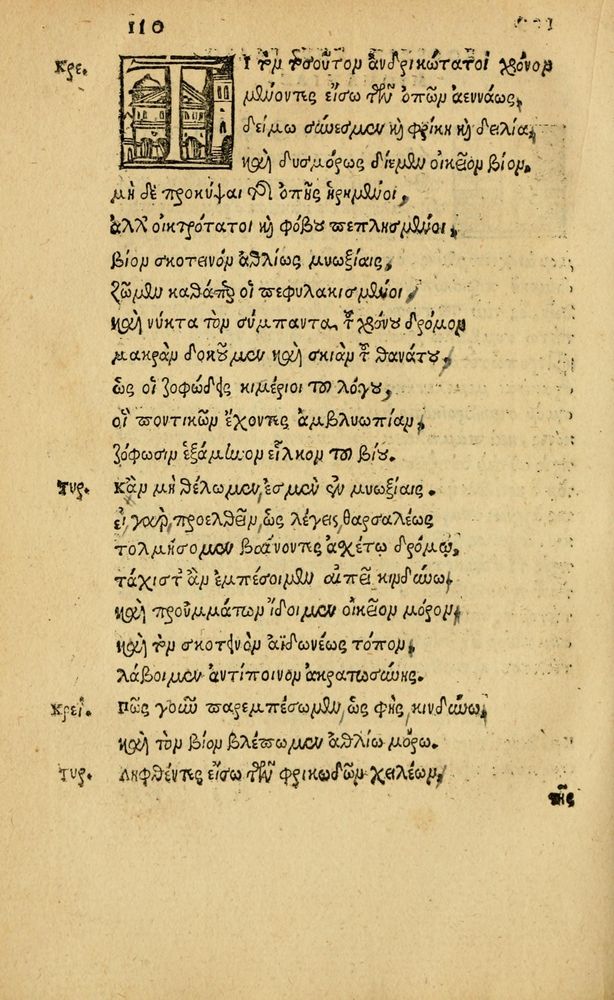 110
Κρε. Τί τὸν τσοῦτον ἀνδρικώτατοι χρόνον
μένοντες εἴσω τῶν ὀπῶν ἀεννάως,
δείμω σύνεσμεν καὶ φρίκη καὶ δειλία,
καὶ δυσμόρως διέμεν οἰκεῖον βίον.
μὴ δὲ προκύψαι τῆς ὀπῆς ἠρημένοι,
ἀλλ' οἰκτρότατοι καὶ φόβου πεπλησμένοι,
βίον σκοτεινὸν ἀθλίως μυωξίαις,
ζῶμεν καθάπερ οἱ πεφυλακισμένοι,
καὶ νύκτα τὸν σύμπαντα τοῦ χρόνου δρόμον
μακρὰν δοκοῦμεν καὶ σκιὰν τοῦ θανάτου,
ὡς οἱ ζοφώδεις κιμέριοι τοῦ λόγου,
οἳ ποντικῶν ἔχοντες ἀμβλυωπίαν,
ζόφωσιν ἑξάμηνον εἷλκον τοῦ βίου.
Τυρ. Κἂν μὴ θέλωμεν, ἐσμὲν ἐν μυωξίαις.
εἰ γὰρ προελθεῖν, ὡς λέγεις θαρσαλέως
τολμήσομεν βαίνοντες ἀχέτω δρόμῳ,
τάχιστ' ἂν ἐμπέσοιμεν αἰπεῖ κινδύνω,
καὶ προὐμμάτων ἴδοιμεν οἰκεῖον μόρον,
καὶ τὸν σκοτεινὸν ἀϊδωνέως τόπον,
λάβοιμεν ἀντίποινον ἀκρατωσύνης.
Κρεΐ. Πῶς γοῦν παρεμπέσωμεν, ὡς φῂς, κινδύνω,
καὶ τὸν βίον βλέπωμεν ἀθλίω μόρω.
Τυρ. Ληφθέντες εἴσω τῶν φρικωδῶν χειλέων,
τῆς